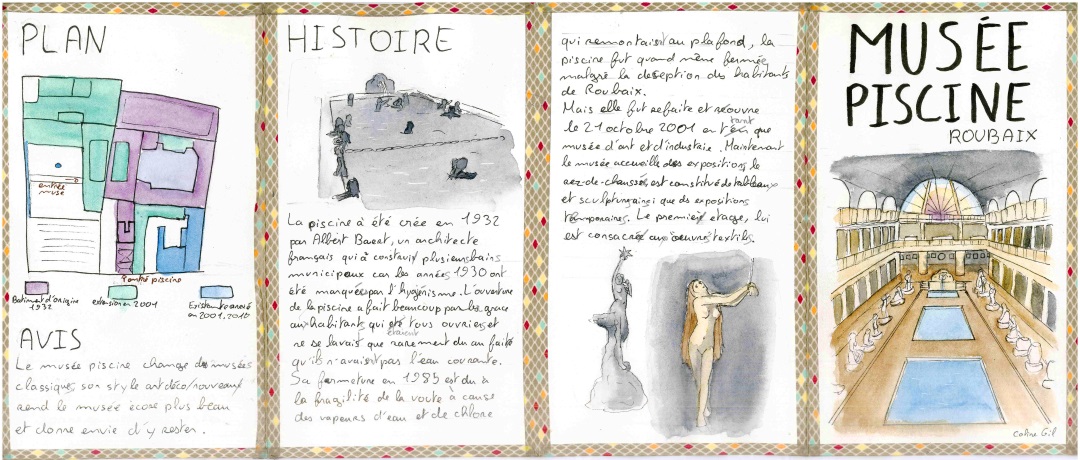 PLAN
entrée
musé
l'entré piscine
Batiment d'origine
1932
extension en 2001
Existante annexé
en 2001, 2010
AVIS
Le musée piscine change des musées
classiques son style art déco/nouveau
rend le musée écore plus beau
et donne envie d'y rester.
HISTOIRE
La piscine à été crée en 1932
par Albert Baert, un architecte
français qui à construit plusieurs bains
municipaux car les années 1930 ont
été marquées par l'hygiénisme. L'ouverture
de la piscine a fait beaucoup parler grace
aux habitants qui été tous ouvriers et
étaient
ne se lavait que rarement du au faite
qu'ils n'avaist pas l'eau courante.
Sa fermeture en 1985 est du à
la fragilité de la voute à cause
des vapeurs d'eau et de chlore
qui remontaist au plafond, la
piscine fut quand même fermée
malgré la deseption des habitants
de Roubaix.
Mais elle fut refaite et réouvre
le 21 octobre 2001 en tant que
musée d'art et d'industrie. Maintenant
le musée accueille des expositions le
rez-de-chaussée est constitué de tableaux
et sculptures ainsi que des expositions
temporaires. Le premier etage, lui
est consacrée aux oeuvres textils.
MUSÉE
PISCINE
ROUBAIX
Coline Gil